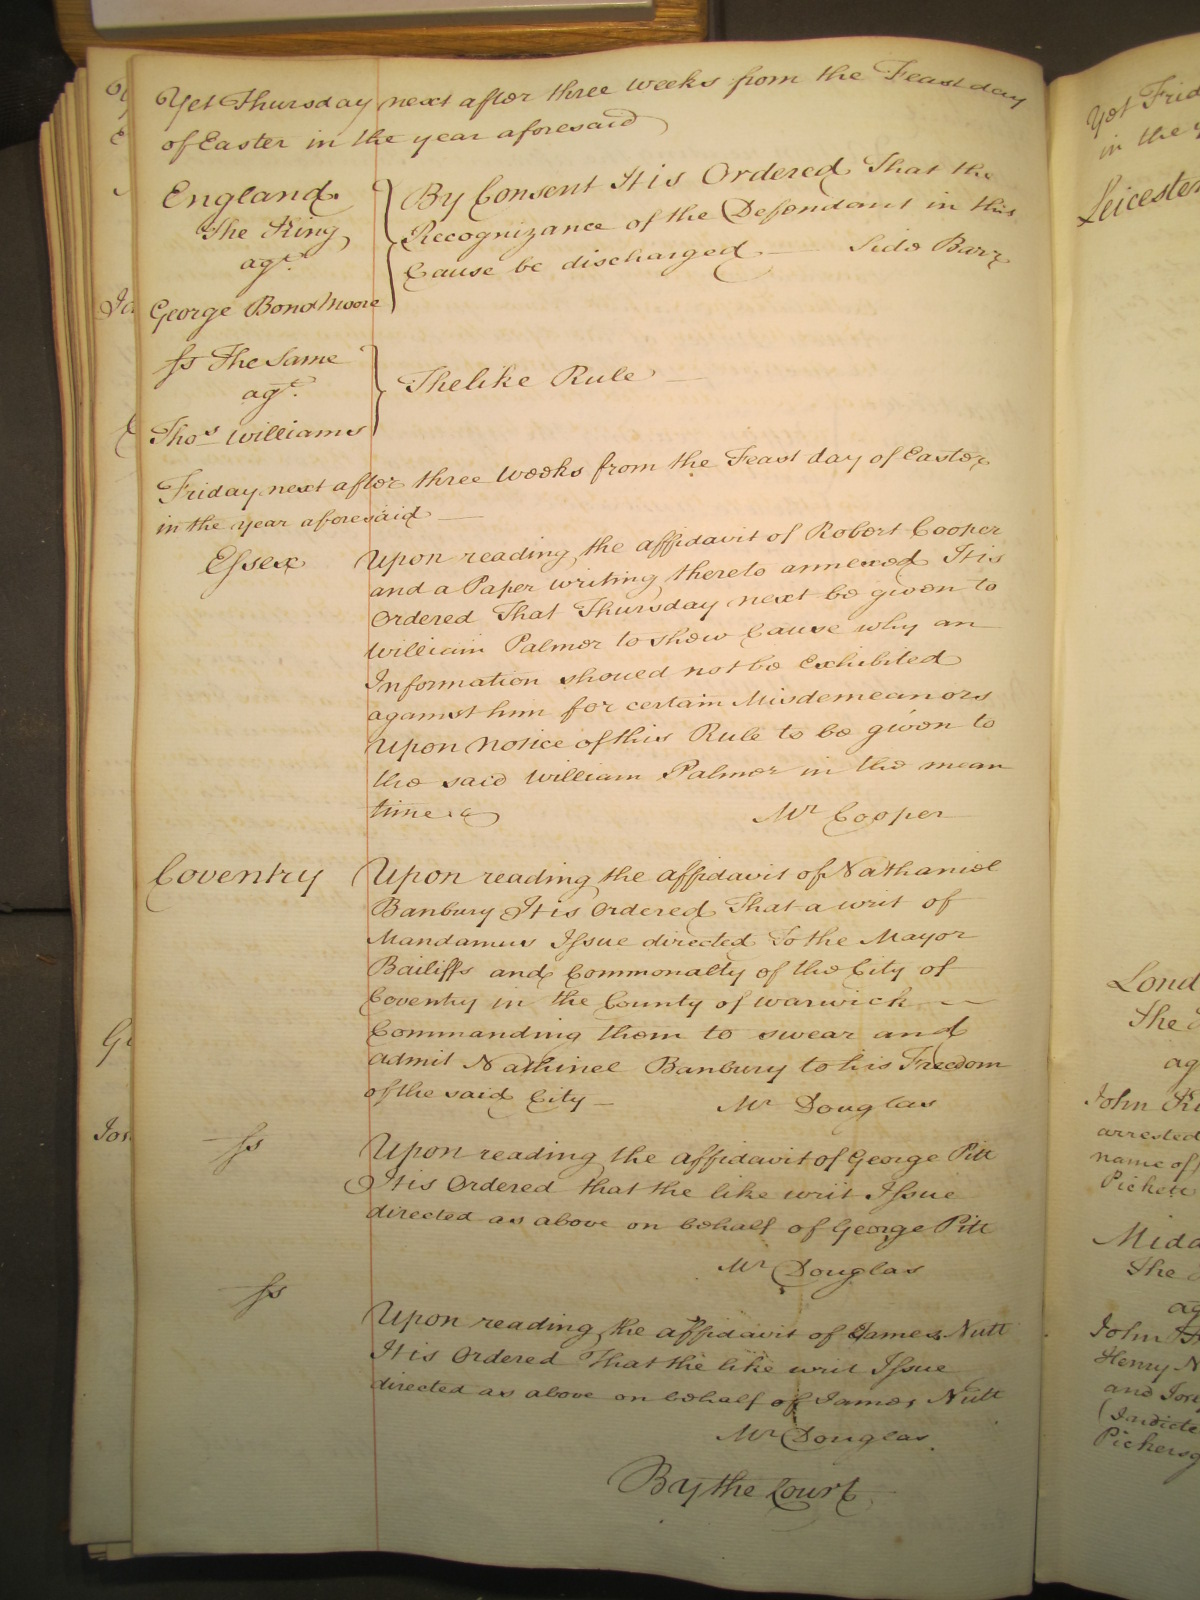 Yet Thursday next after three weeks from the Feast day
of Easter in the year aforesaid
England
The King
agt.
George Bond Moore
By Consent It is Ordered That the
Recognizance of the Defendant in this
Cause be discharged Side Barr
Ss The Same
agt.
Thos Williams
The like Rule
Friday next after three Weeks from the Feast day of Easter
in the year aforesaid
Essex
Upon reading the affidavit of Robert Cooper
and a Paper writing thereto annexed It is
Ordered That Thursday next be given to
William Palmer to shew Cause why an
Information should not be Exhibited
against him for certain Misdemeanors
Upon Notice of this Rule to be given to
the said William Palmer in the mean
time
Mr Cooper
Coventry
Upon reading the affidavit of Nathaniel
Banbury It is Ordered That a writ of
Mandamus Issue directed To the Mayor
Bailiffs and Commonalty of the City of
Coventry in the County of Warwick
Commanding them to swear and
admit Nathinel Banbury to his Freedom
of the said City Mr Douglas
Ss
Upon reading the affidavit of George Pitt
It is Ordered that the like writ Issue
directed as above on behalf of George Pitt
Mr Douglas
Ss
Upon reading the affidavit of James Nutt
It is Ordered That the like writ Issue
directed as above on behalf of James Nutt
Mr Douglas
By the Court
Leicester
The
John
arrested
name of
The
John
Henry
and